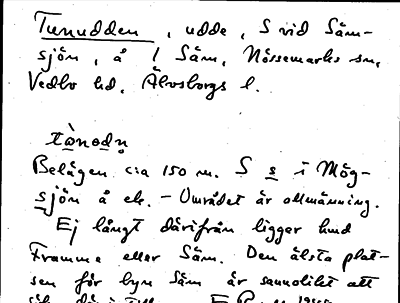 Tunudden, udde, S vid Säm-
sjön, å 1 Säm, Nössemarks sn,
Vedbo hd, Älvsborgs l.
tὼnɵdn̥
Belägen c:a 150 m. S s i Mög-
sjön å ek. – Området är allmänning.
Ej långt därifrån ligger hmd
Framme eller Säm. Den älsta plat-
sen för byn Säm är sannolikt att